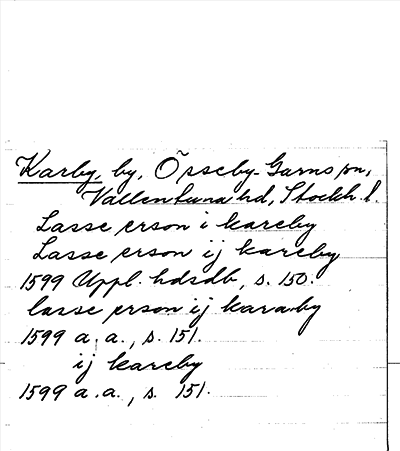 Karby, by, Össeby-Garns sn,
Vallentuna hd, Stockh. l.
Lasse erson i kareby
Lasse erson ij kareby
1599 Uppl. hdsdb, s. 150.
lasse erson ij karaby
1599 a. a., s. 151.
ij kareby
1599 a. a., s. 151.